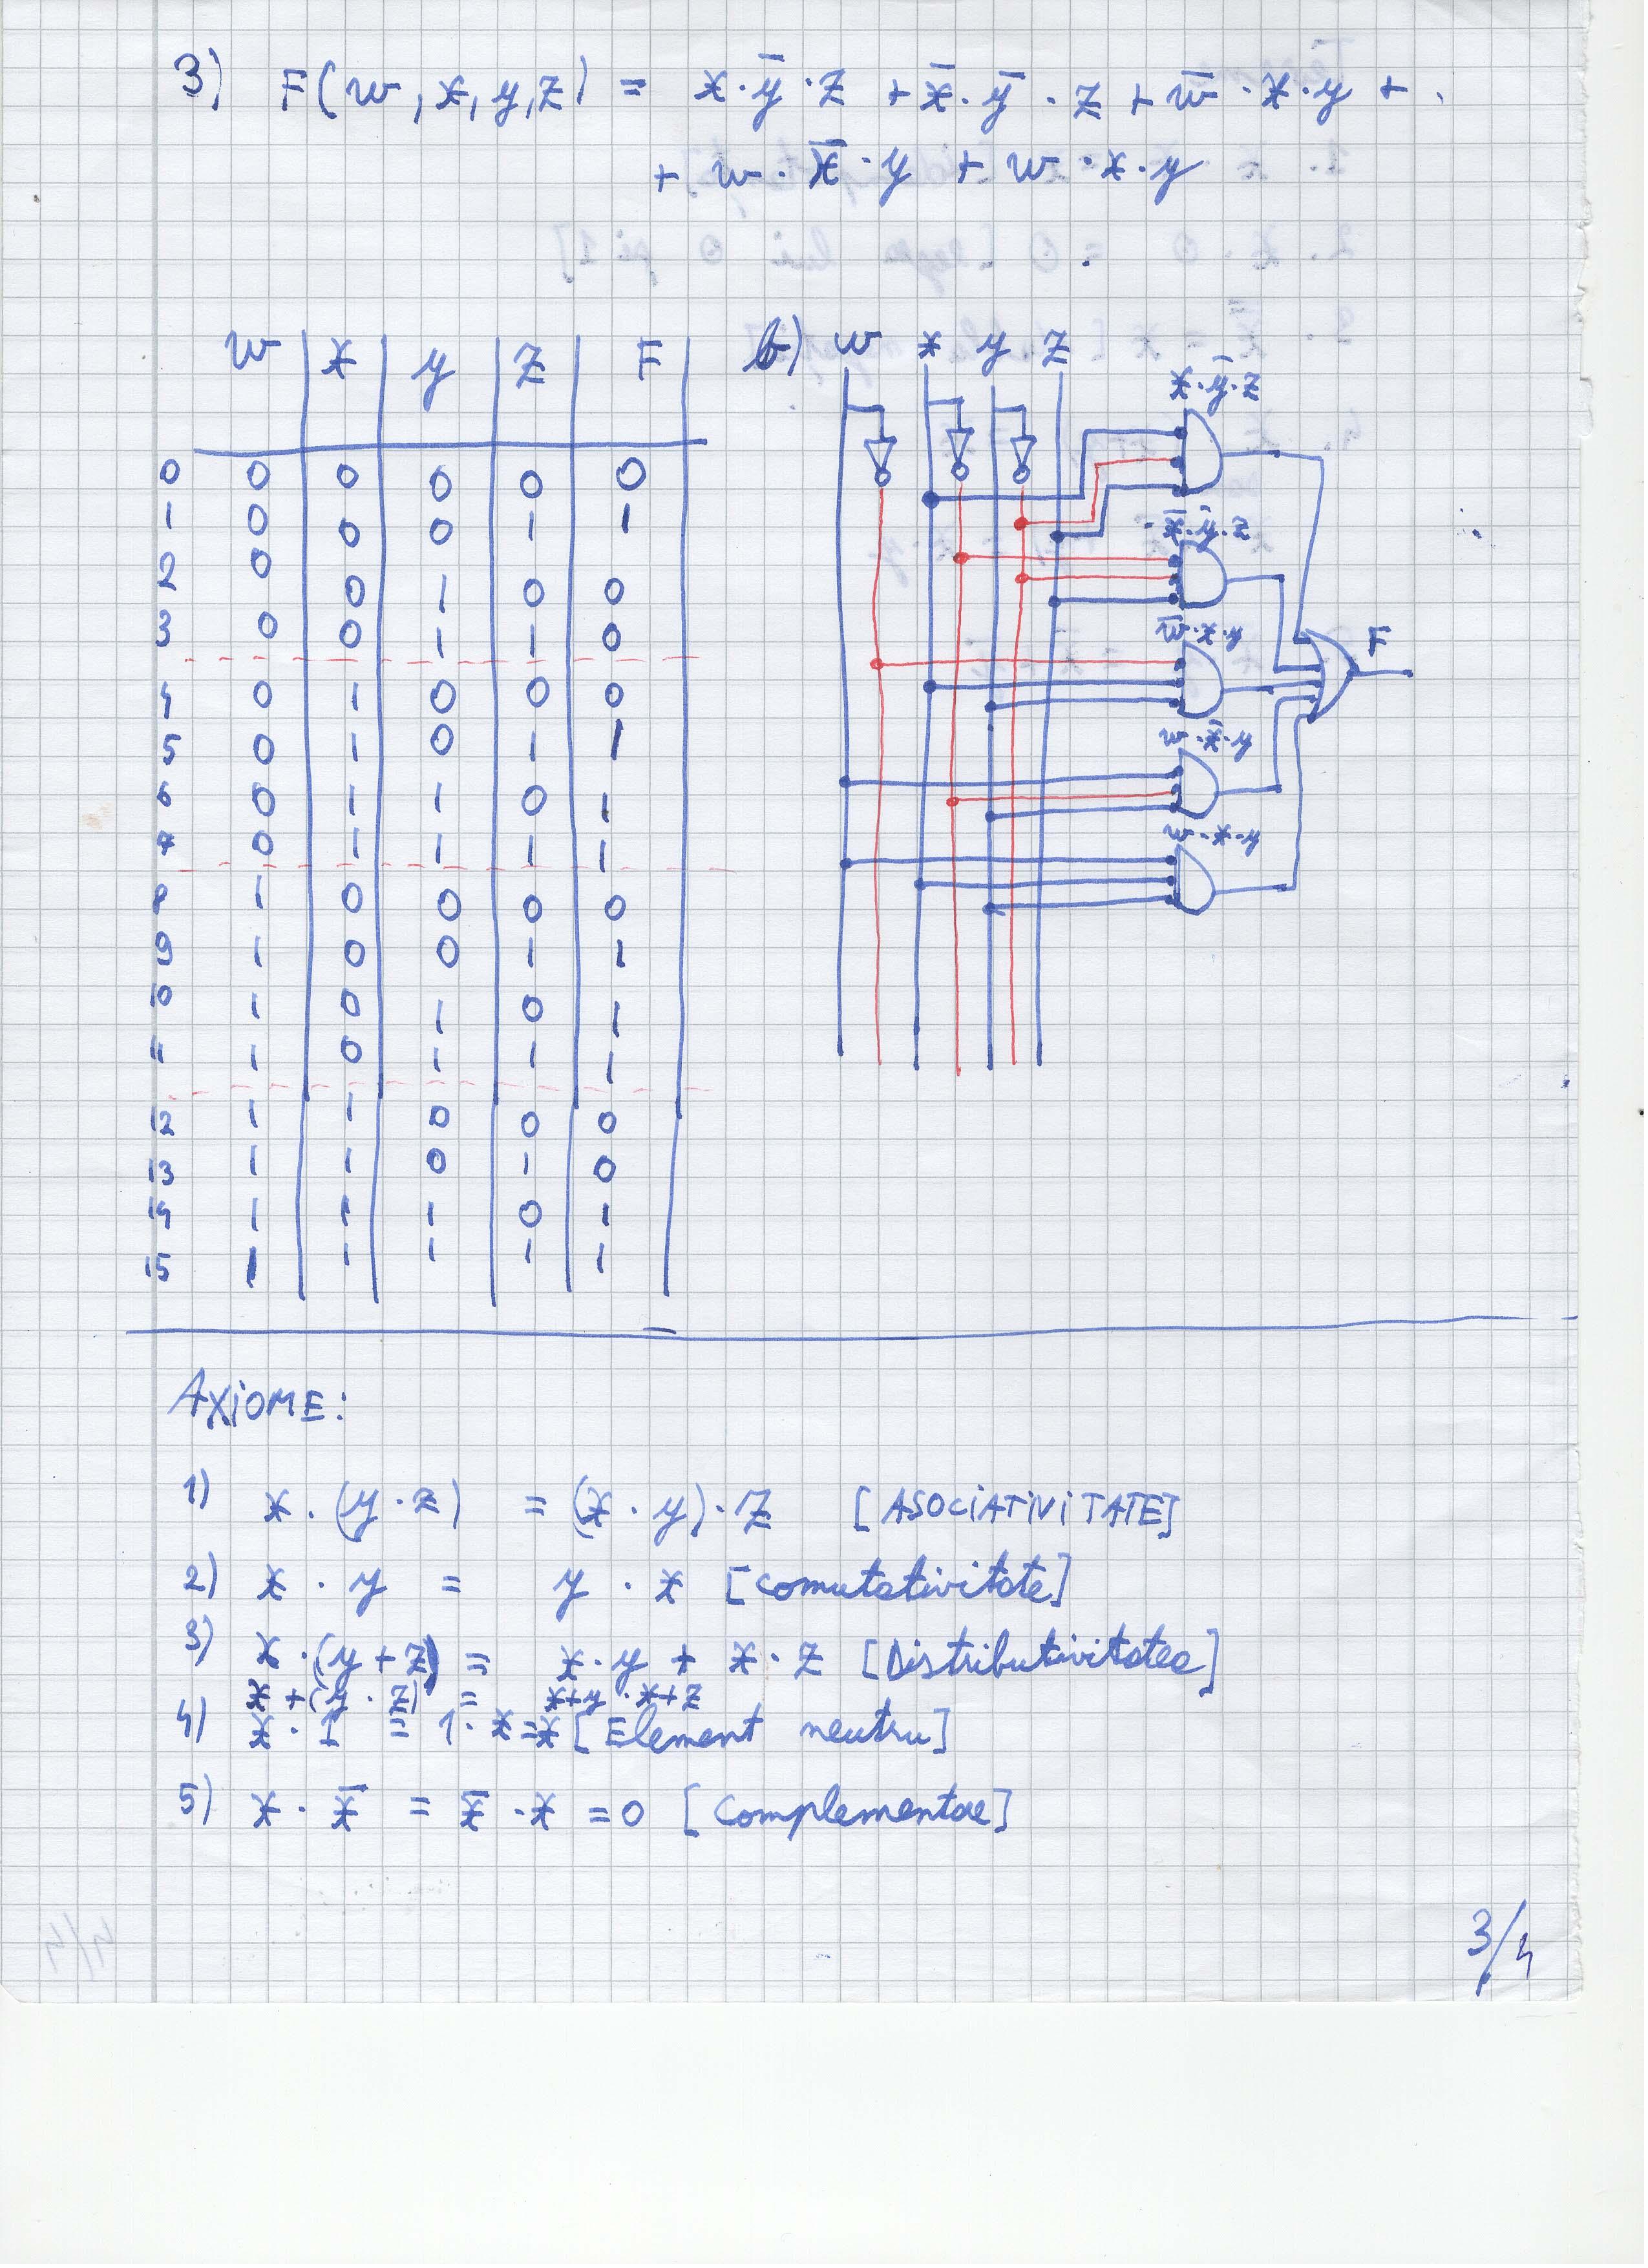 3) F(w,x,y,z) = x·ȳ·z + x̄·ȳ·z + w̄·x·y +
+ w·x̄·y + w·x·y
w x y z F
0 0 0 0 0 0
1 0 0 0 1 1
2 0 0 1 0 0
3 0 0 1 1 0
4 0 1 0 0 0
5 0 1 0 1 1
6 0 1 1 0 1
7 0 1 1 1 1
8 1 0 0 0 0
9 1 0 0 1 1
10 1 0 1 0 1
11 1 0 1 1 1
12 1 1 0 0 0
13 1 1 0 1 0
14 1 1 1 0 1
15 1 1 1 1 1
b) w x y z
x·ȳ·z
x̄·ȳ·z
w̄·x·y
F
w·x̄·y
w·x·y
AXIOME:
1) x·(y·z) = (x·y)·z [ASOCIATIVITATE]
2) x·y = y·x [comutativitate]
3) x·(y+z) = x·y + x·z [Distributivitatea]
x+(y·z) = x+y·x+z
4) x·1 = 1·x=x [Element neutru]
5) x·x̄ = x̄·x =0 [Complementae]
3/4